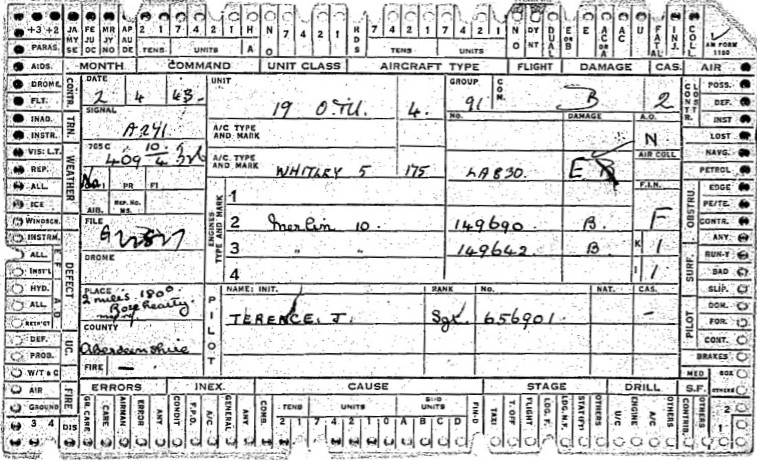 +3 +2 JA MY SE FE JU OC MR JY NO AP AU DE 2 1 7 4 2 1 H A N O 7 4 2 1 HDS 7 4 2 1 7 4 2 1 N O DY NT DUAL E or B AC or A AC U FATAL INJ. COLL. AM FORM 1180
PARAS. TENS UNITS TENS UNITS
AIDS. MONTH COMMAND UNIT CLASS AIRCRAFT TYPE FLIGHT DAMAGE CAS. AIR
DROME CONTR. DATE UNIT GROUP COM. CONTR. LOST POSS.
FLT. 2 4 43 19 O.T.U. 4. 91 B 2 DEF.
INAD. TRN. SIGNAL No. DAMAGE A.O. INST
INSTR. A241. A/C TYPE AND MARK N LOST
VIS: L.T. WEATHER 765 C AIR COLL NAVG.
REP. 409 A/C TYPE AND MARK WHITLEY 5 175 LA830. E PETROL
ALL. PR FI F.I.N. OBSTRU. EDGE
ICE AIB. REP. No. MS. ENGINES TYPE AND MARK 1 PE/TE.
WINDSCR. FILE 2 Merlin 10. 149690 B. F CONTR.
INSTRM. DEFECT 3 " " 149642 B. K 1 ANY.
ALL. DROME SURF. RUN-Y
INST'L 4 I 1 BAD
HYD. PLACE PILOT NAME: INIT. RANK No. NAT. CAS. SLIP.
ALL. 2 miles 180° Rosehearty TERENCE. J. Sgt. 656901. - PILOT DOM.
RETR'CT FOR.
DEF. UC. COUNTY CONT.
PROB. Aberdeenshire BRAKES
W/T & C FIRE — MED BOX
AIR FIRE ERRORS INEX. CAUSE STAGE DRILL S.F. OTHERS
GROUND GR. CARE CARE AIRMAN ERROR ANY CONDIT F.P.O. A/C GENERAL ANY COMB. TENS UNITS SUB UNITS FIN-D TAXI T. OFF FLIGHT LDG. F. LDG. N.F. STAT(FY) OTHERS U/C ENGINE A/C OTHERS CONTRIB. OTHERS 2
3 4 DIS 2 1 7 4 2 1 0 A B C D 1